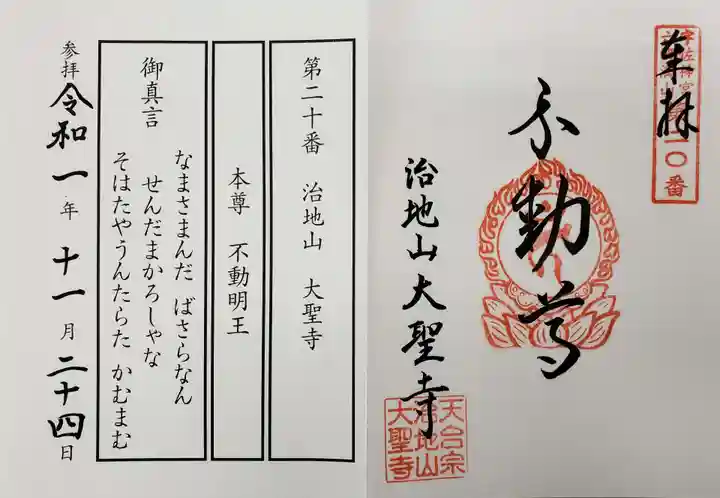 奉拝
二〇番
不動尊
治地山大聖寺
天台宗
治地山
大聖寺
第二十番 治地山 大聖寺
本尊 不動明王
御真言
なまさまんだ ばさらなん
せんだまかろしゃな
そはたやうんたらた かむまむ
参拝 令和一年十一月二十四日